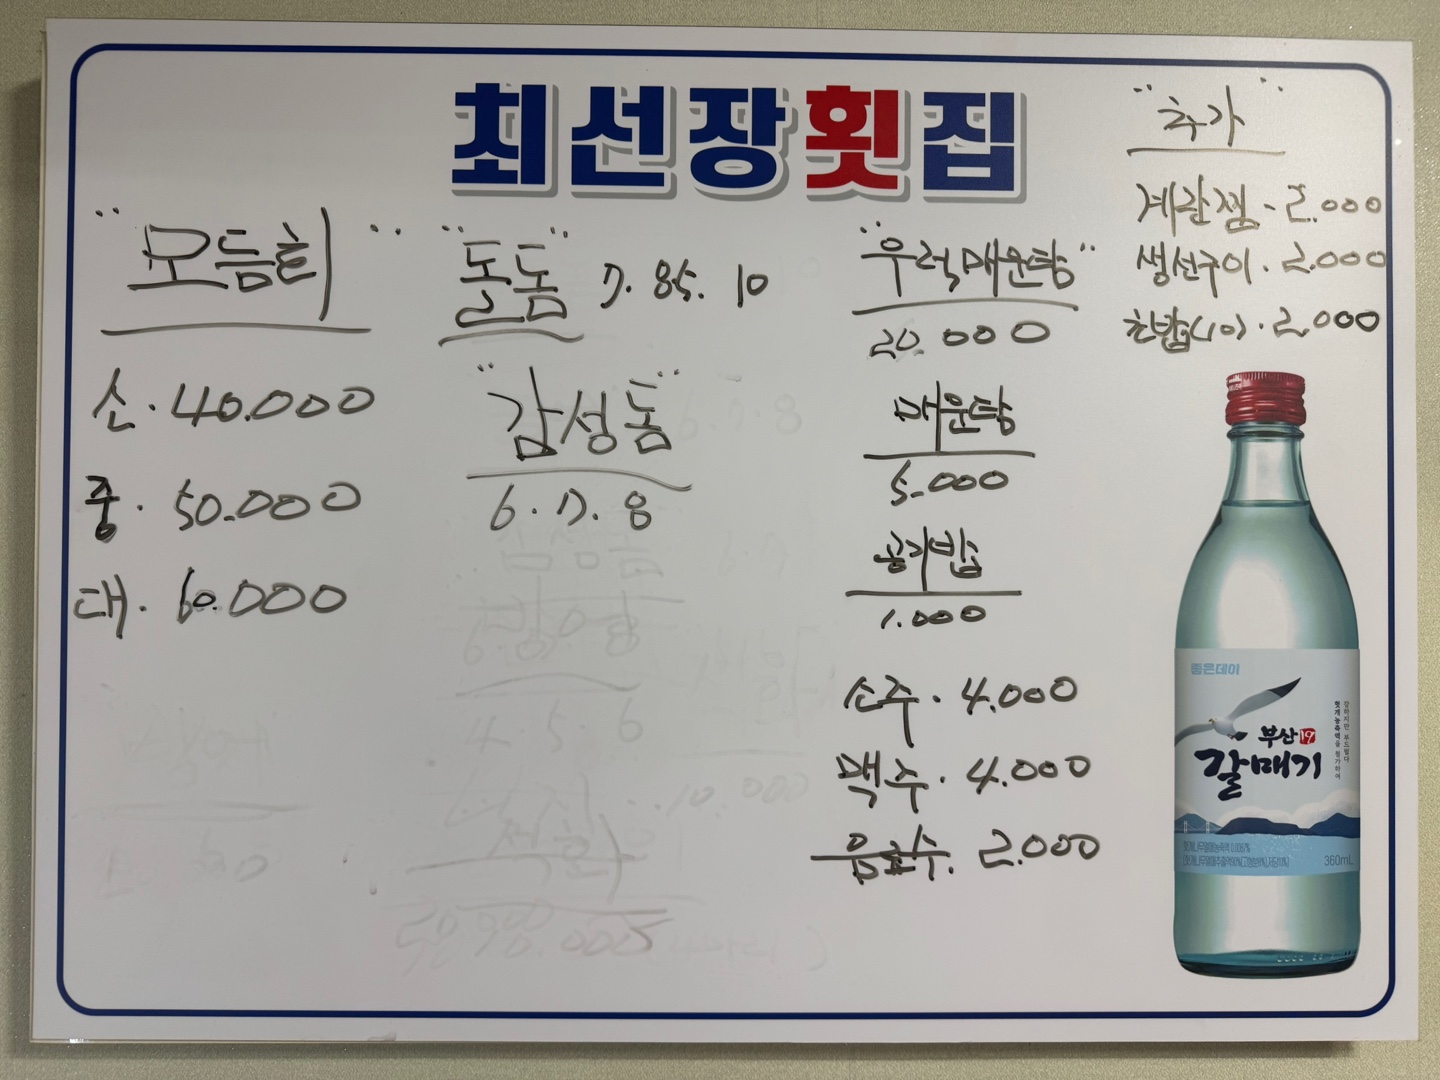 최선장횟집
"모듬회"
소. 40.000
중. 50.000
대. 60.000
"돌돔" 7. 85. 10
"감성돔"
6. 7. 8
"우럭매운탕"
20.000
매운탕
5.000
공기밥
1.000
소주. 4.000
맥주. 4.000
음료수. 2.000
"추가"
계란찜. 2.000
생선구이. 2.000
초밥(10). 2.000
좋은데이
부산 19
갈매기
강하지만 부드럽다
360mL